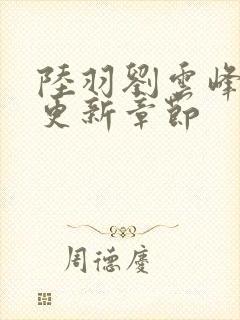 陸羽劉雲峰
更新章節
周德慶